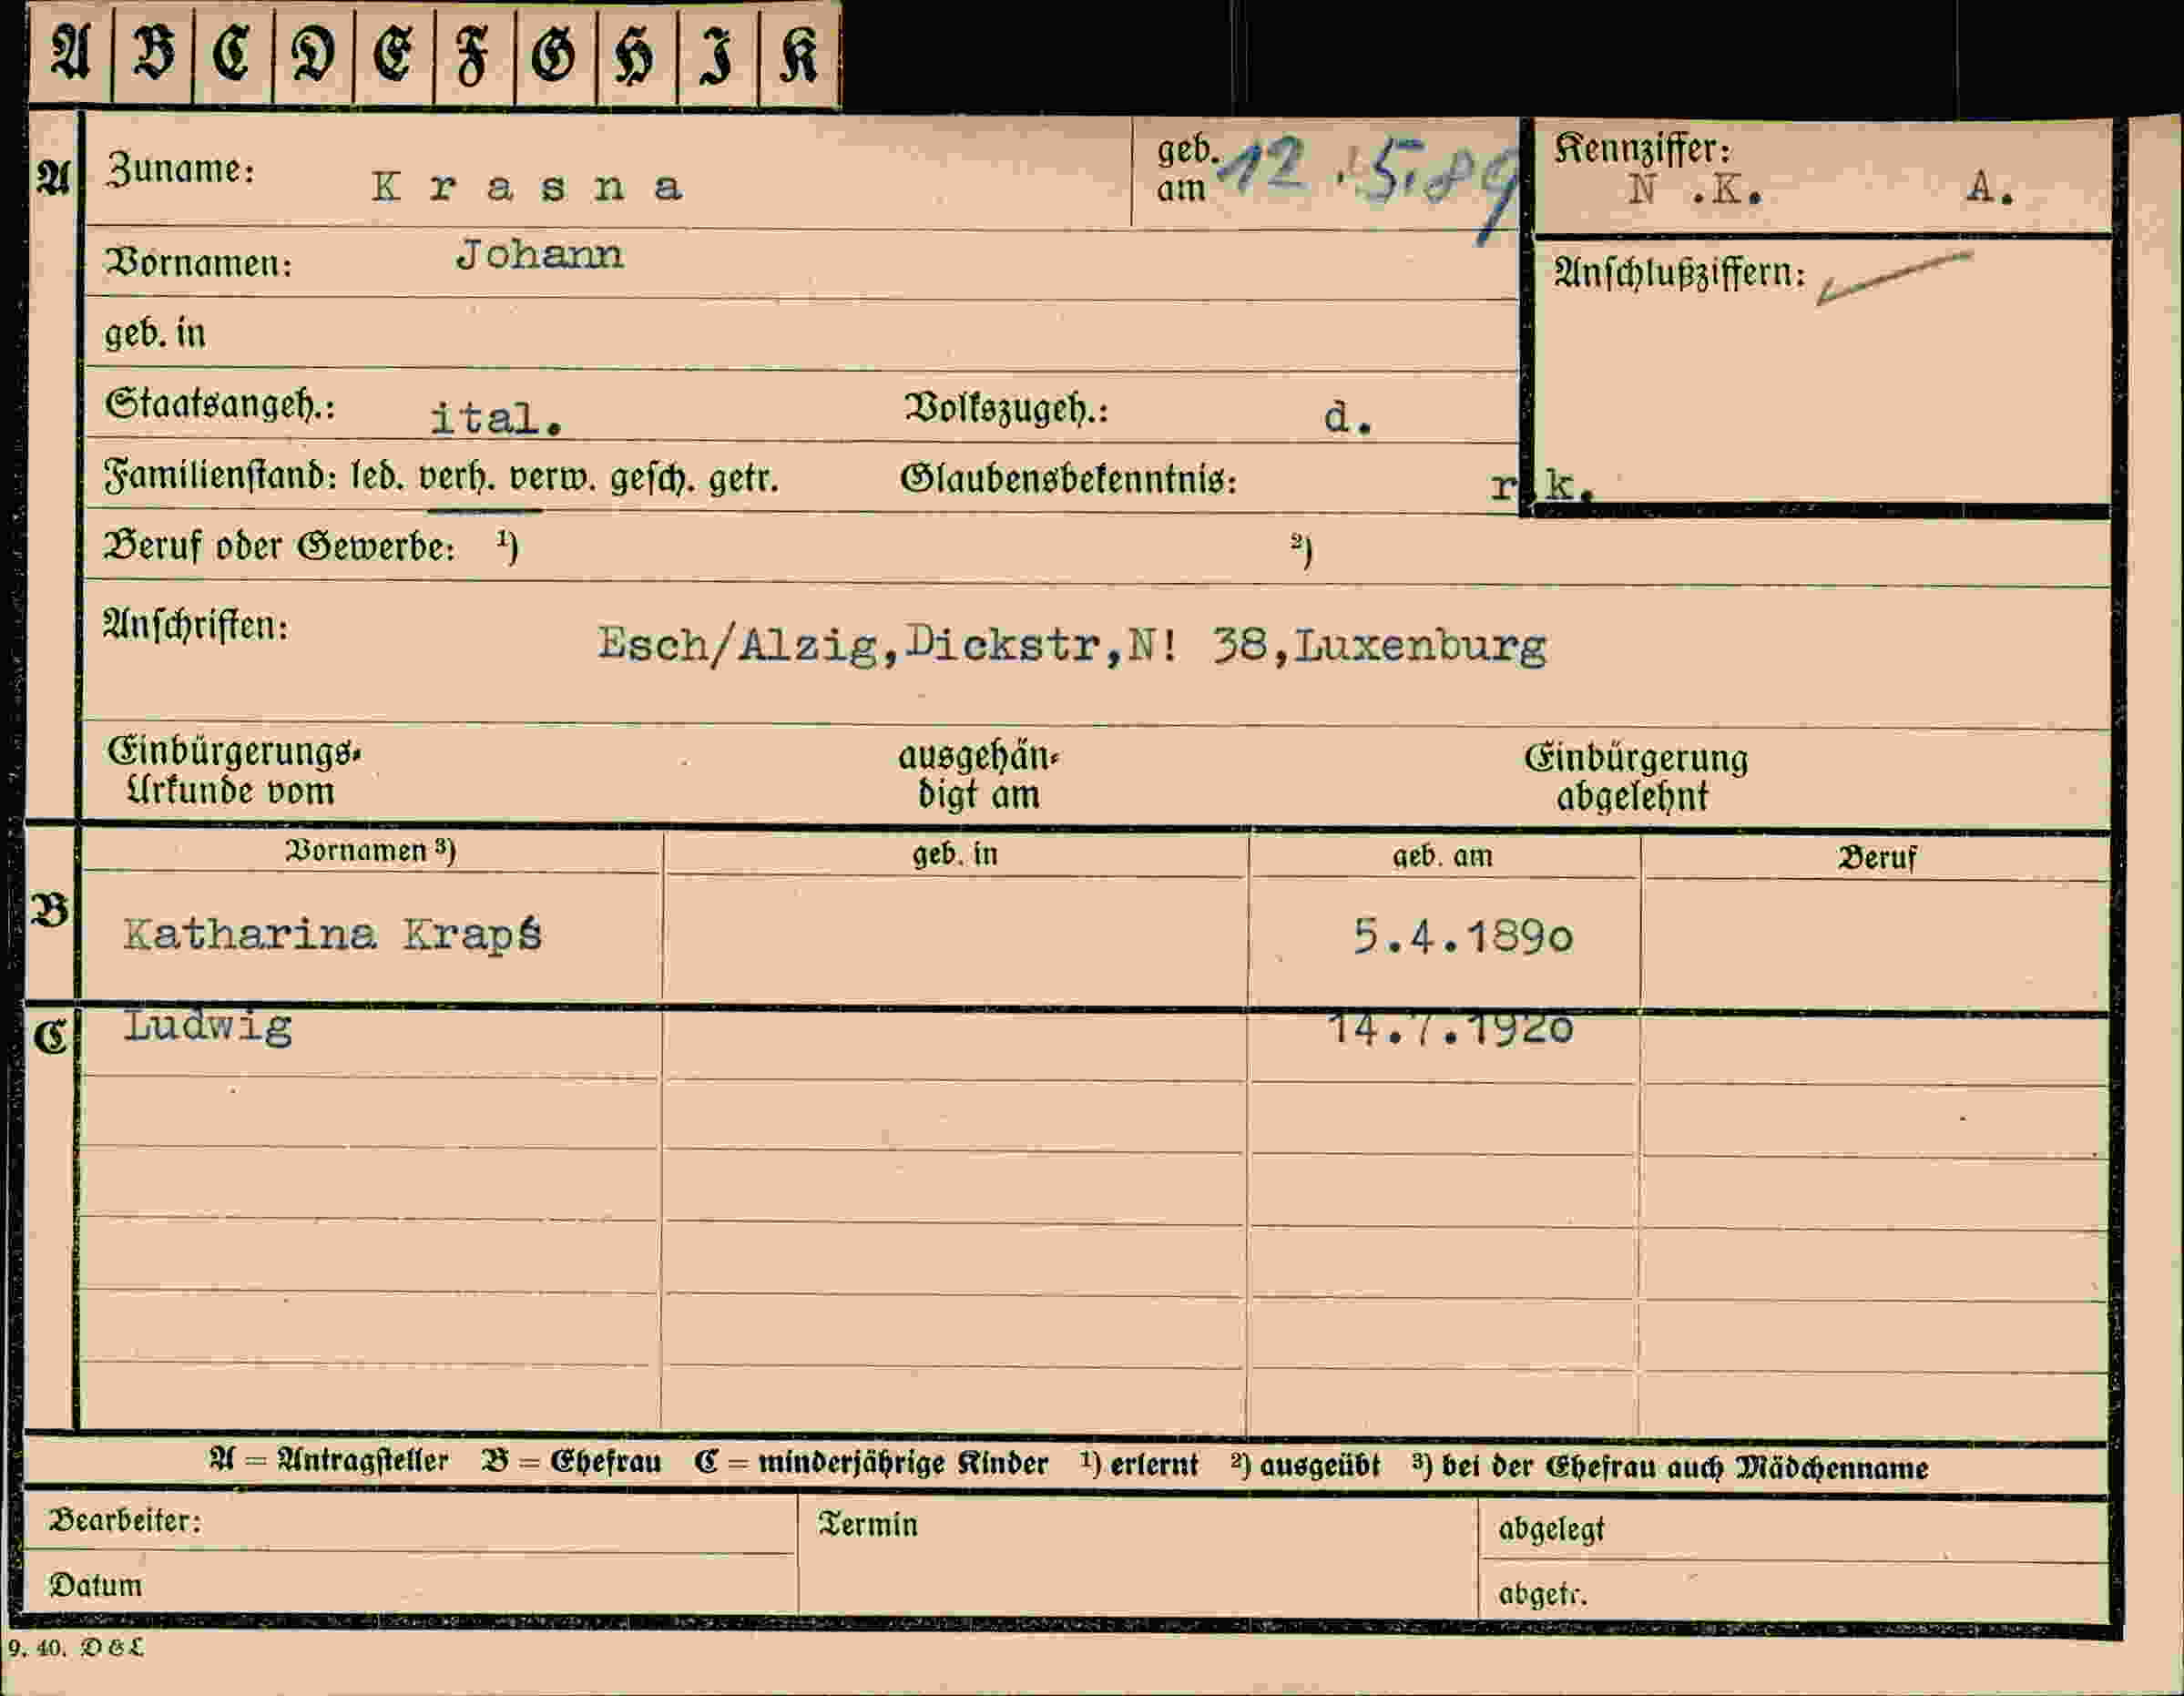 A B C D E F G H I K
A Zuname: Krasna geb. am 12.5.89 Kennziffer: N .K. A.
Vornamen: Johann Anschlußziffern:
geb. in
Staatsangeh.: ital. Volkszugeh.: d.
Familienstand: led. verh. verw. gesch. getr. Glaubensbekenntnis: r.k.
Beruf oder Gewerbe: ¹) ²)
Anschriften: Esch/Alzig,Dickstr,N! 38,Luxenburg
Einbürgerungs- ausgehän- Einbürgerung
Urkunde vom digt am abgelehnt
Vornamen ³) geb. in geb. am Beruf
B Katharina Kraps 5.4.1890
C Ludwig 14.7.1920
A = Antragsteller B = Ehefrau C = minderjährige Kinder ¹) erlernt ²) ausgeübt ³) bei der Ehefrau auch Mädchenname
Bearbeiter: Termin abgelegt
Datum abgetr.
9. 40. D & L